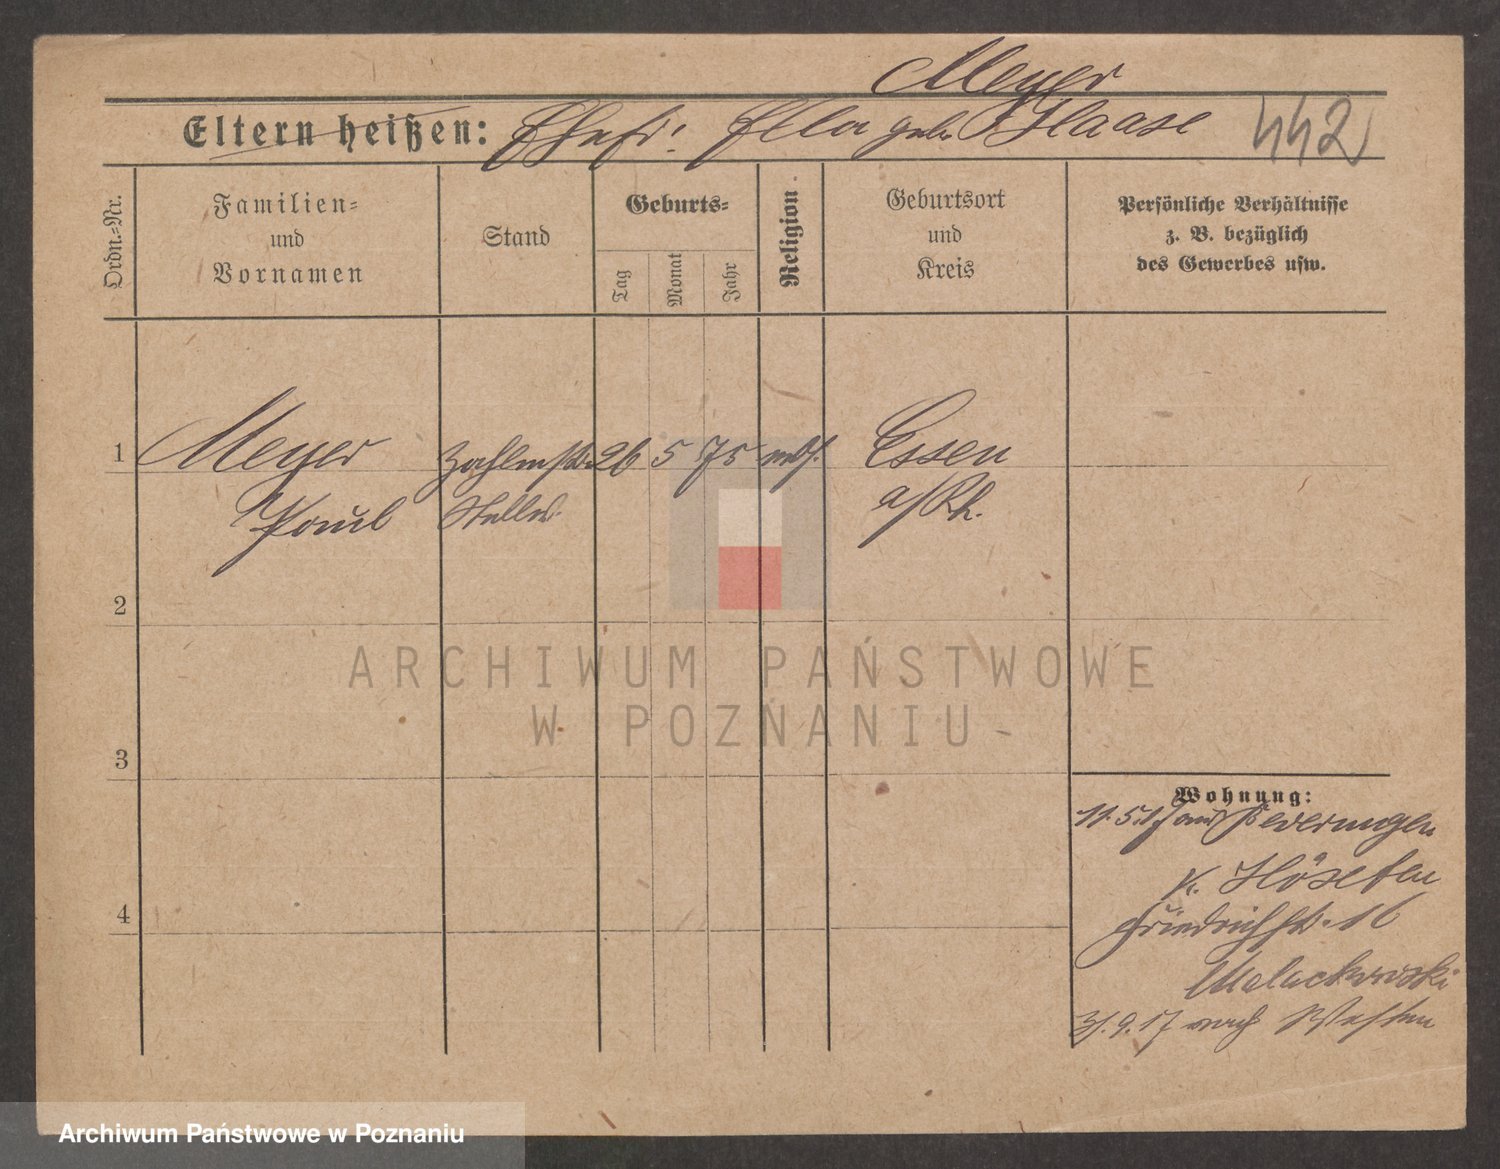 Meyer
Eltern heißen: Ehefr: Ella geb. Haase 442
Ordn.-Nr.
Familien-
und
Vornamen
Stand
Geburts-
Tag
Monat
Jahr
Religion
Geburtsort
und
Kreis
Persönliche Verhältnisse
z. B. bezüglich
des Gewerbes usw.
1 Meyer Zahlmstr. 26 5 75 Essen
Paul Stellv. a/Rh.
2
3
4
Wohnung:
11.5.17 aus
K.
Friedrichstr. 16
Malackowski
3/.9.17 nach Westen
ARCHIWUM PAŃSTWOWE
W POZNANIU
Archiwum Państwowe w Poznaniu